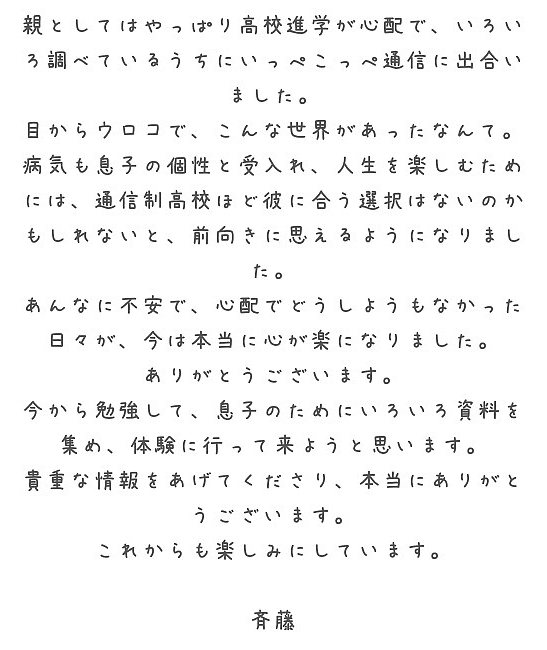 親としてはやっぱり高校進学が心配で、いろい
ろ調べているうちにいっぺこっぺ通信に出合い
ました。
目からウロコで、こんな世界があったなんて。
病気も息子の個性と受入れ、人生を楽しむため
には、通信制高校ほど彼に合う選択はないのか
もしれないと、前向きに思えるようになりまし
た。
あんなに不安で、心配でどうしようもなかった
日々が、今は本当に心が楽になりました。
ありがとうございます。
今から勉強して、息子のためにいろいろ資料を
集め、体験に行って来ようと思います。
貴重な情報をあげてくださり、本当にありがと
うございます。
これからも楽しみにしています。
斉藤